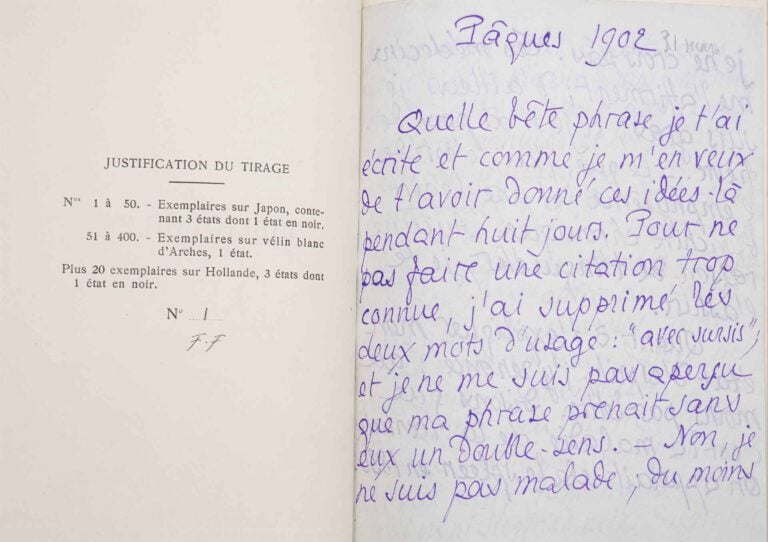 JUSTIFICATION DU TIRAGE
Nos 1 à 50. - Exemplaires sur Japon, conte-
nant 3 états dont 1 état en noir.
51 à 400. - Exemplaires sur vélin blanc
d'Arches, 1 état.
Plus 20 exemplaires sur Hollande, 3 états dont
1 état en noir.
No 1
F.F
Pâques 1902
Quelle bête phrase je t'ai
écrite et comme je m'en veux
de t'avoir donné ces idées-là
pendant huit jours. Pour ne
pas faire une citation trop
connue, j'ai supprimé les
deux mots d'usage : "avec sursis";
et je ne me suis pas aperçu
que ma phrase prenait sans
eux un double-sens. — Non, je
ne suis pas malade, du moins